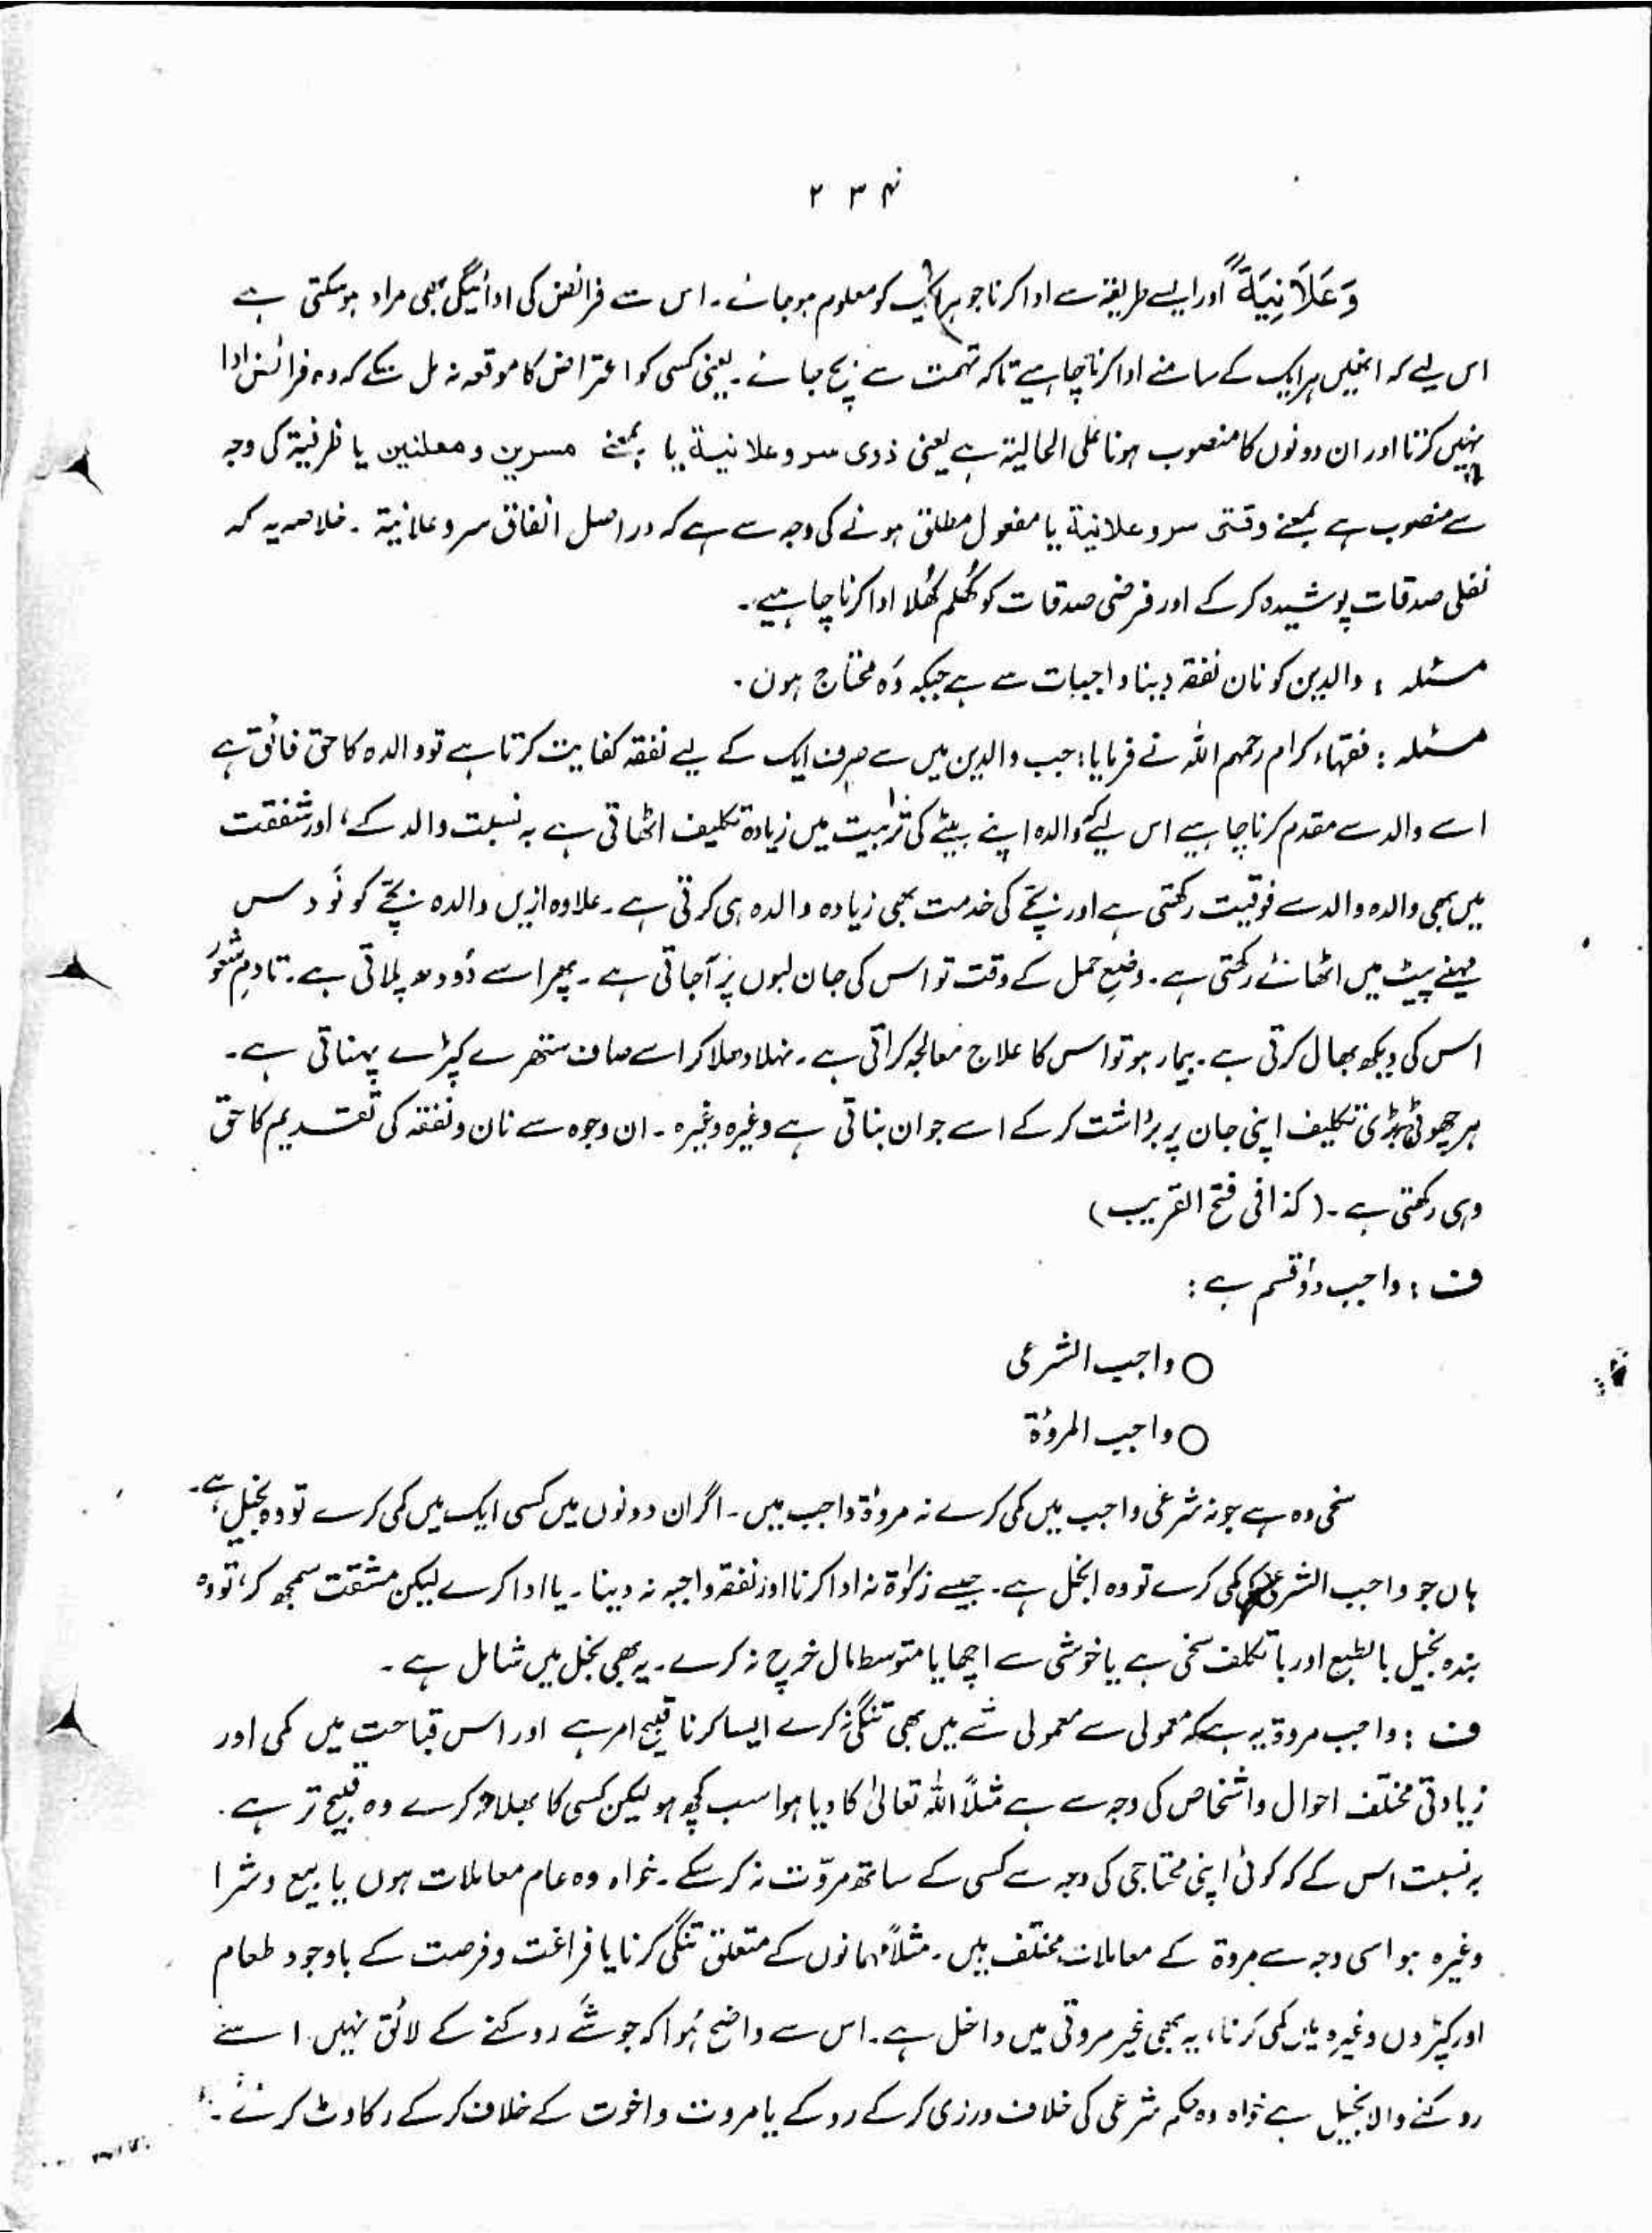 ۲۳۴
وَعَلَانِيَةً اور ایسے طریقہ سے ادا کرنا جو ہر ایک کو معلوم ہو جائے۔ اس سے فرائض کی ادائیگی بھی مراد ہو سکتی ہے
اس لیے کہ انھیں ہر ایک کے سامنے ادا کرنا چاہیے تاکہ تہمت سے بچ جائے۔ یعنی کسی کو اعتراض کا موقعہ نہ مل سکے کہ وہ فرائض ادا
نہیں کرتا اور ان دونوں کا منصوب ہونا علی الحالیۃ ہے یعنی ذوی سر و علانیۃ یا بمعنے مسرین و معلنین یا ظرفیۃ کی وجہ
سے منصوب ہے بمعنے وقتی سر و علانیۃ یا مفعول مطلق ہونے کی وجہ سے ہے کہ دراصل انفاق سر و علانیۃ ۔ خلاصہ یہ کہ
نفلی صدقات پوشیدہ کر کے اور فرضی صدقات کو کُھلم کُھلا ادا کرنا چاہیے۔
مسئلہ : والدین کو نان نفقہ دینا واجبات سے ہے جبکہ وُہ محتاج ہوں ۔
مسئلہ : فقہاء کرام رحمہم اللہ نے فرمایا : جب والدین میں سے صرف ایک کے لیے نفقہ کفایت کرتا ہے تو والدہ کا حق فائق ہے
اسے والد سے مقدم کرنا چاہیے اس لیے کہ والدہ اپنے بیٹے کی تربیت میں زیادہ تکلیف اٹھاتی ہے بہ نسبت والد کے ، اور شفقت
میں بھی والدہ والد سے فوقیت رکھتی ہے اور بچے کی خدمت بھی زیادہ والدہ ہی کرتی ہے۔ علاوہ ازیں والدہ بچّے کو نَو دس
مہینے پیٹ میں اٹھائے رکھتی ہے۔ وضعِ حمل کے وقت تو اس کی جان لبوں پر آجاتی ہے ۔ پھر اسے دُودھ پلاتی ہے ۔ تادمِ شعور
اس کی دیکھ بھال کرتی ہے ۔ بیمار ہو تو اس کا علاج معالجہ کراتی ہے ۔ نہلا دھلا کر اسے صاف ستھرے کپڑے پہناتی ہے۔
ہر چھوٹی بڑی تکلیف اپنی جان پر برداشت کر کے اسے جوان بناتی ہے وغیرہ وغیرہ ۔ ان وجوہ سے نان و نفقہ کی تقدیم کا حق
وہی رکھتی ہے ۔ (کذا فی فتح القریب)
ف : واجب دو قسم ہے :
○ واجب الشرعی
○ واجب المروُۃ
سخی وہ ہے جو نہ شرعی واجب میں کمی کرے نہ مروۃ واجب میں ۔ اگر ان دونوں میں کسی ایک میں کمی کرے تو وہ بخیل ہے۔
ہاں جو واجب الشرعی کمی کرے تو وہ ابخل ہے۔ جیسے زکوٰۃ نہ ادا کرنا اور نفقہ واجبہ نہ دینا ۔ یا ادا کرے لیکن مشقت سمجھ کر ، تو وہ
بندہ بخیل بالطبع اور با تکلف سخی ہے یا خوشی سے اچھا یا متوسط مال خرچ نہ کرے ۔ یہ بھی بخل میں شامل ہے ۔
ف : واجب مروۃ یہ ہے کہ معمولی سے معمولی شے میں بھی تنگی نہ کرے ایسا کرنا قبیح امر ہے اور اس قباحت میں کمی اور
زیادتی مختلف احوال و اشخاص کی وجہ سے ہے مثلاً اللہ تعالیٰ کا دیا ہوا سب کچھ ہو لیکن کسی کا بھلا نہ کرے وہ قبیح تر ہے ۔
بہ نسبت اس کے کہ کوئی اپنی محتاجی کی وجہ سے کسی کے ساتھ مروّت نہ کر سکے ۔ خواہ وہ عام معاملات ہوں یا بیع و شرا
وغیرہ ہو اسی وجہ سے مروۃ کے معاملات مختلف ہیں ۔ مثلاً مہمانوں کے متعلق تنگی کرنا یا فراغت و فرصت کے باوجود طعام
اور کپڑوں وغیرہ میں کمی کرنا ، یہ بھی غیر مروتی میں داخل ہے ۔ اس سے واضح ہُوا کہ جو شے روکنے کے لائق نہیں اسے
روکنے والا بخیل ہے خواہ وہ حکم شرعی کی خلاف ورزی کر کے روکے یا مروت و اخوت کے خلاف کر کے رکاوٹ کرے ۔